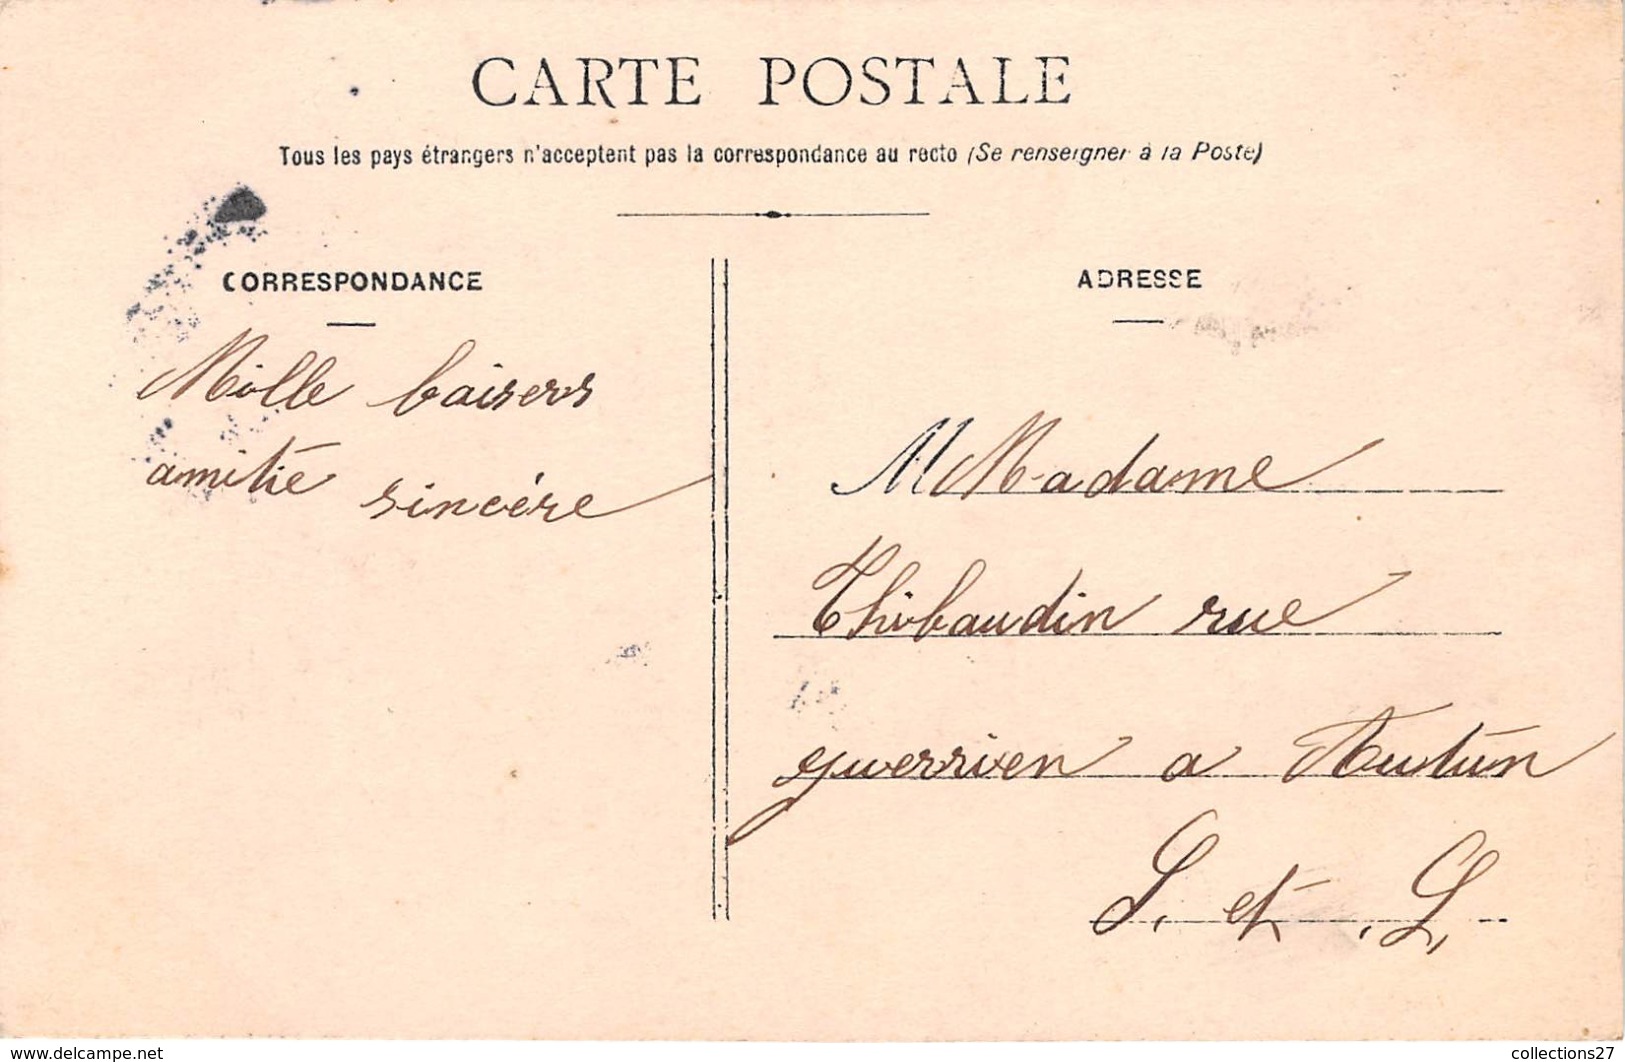 CARTE POSTALE
Tous les pays étrangers n'acceptent pas la correspondance au recto (Se renseigner à la Poste)
CORRESPONDANCE
Mille baisers
amitie sincére
ADRESSE
M Madame
Thibaudin rue
guerrien a Autun
S. et L,
www.delcampe.net
collections27